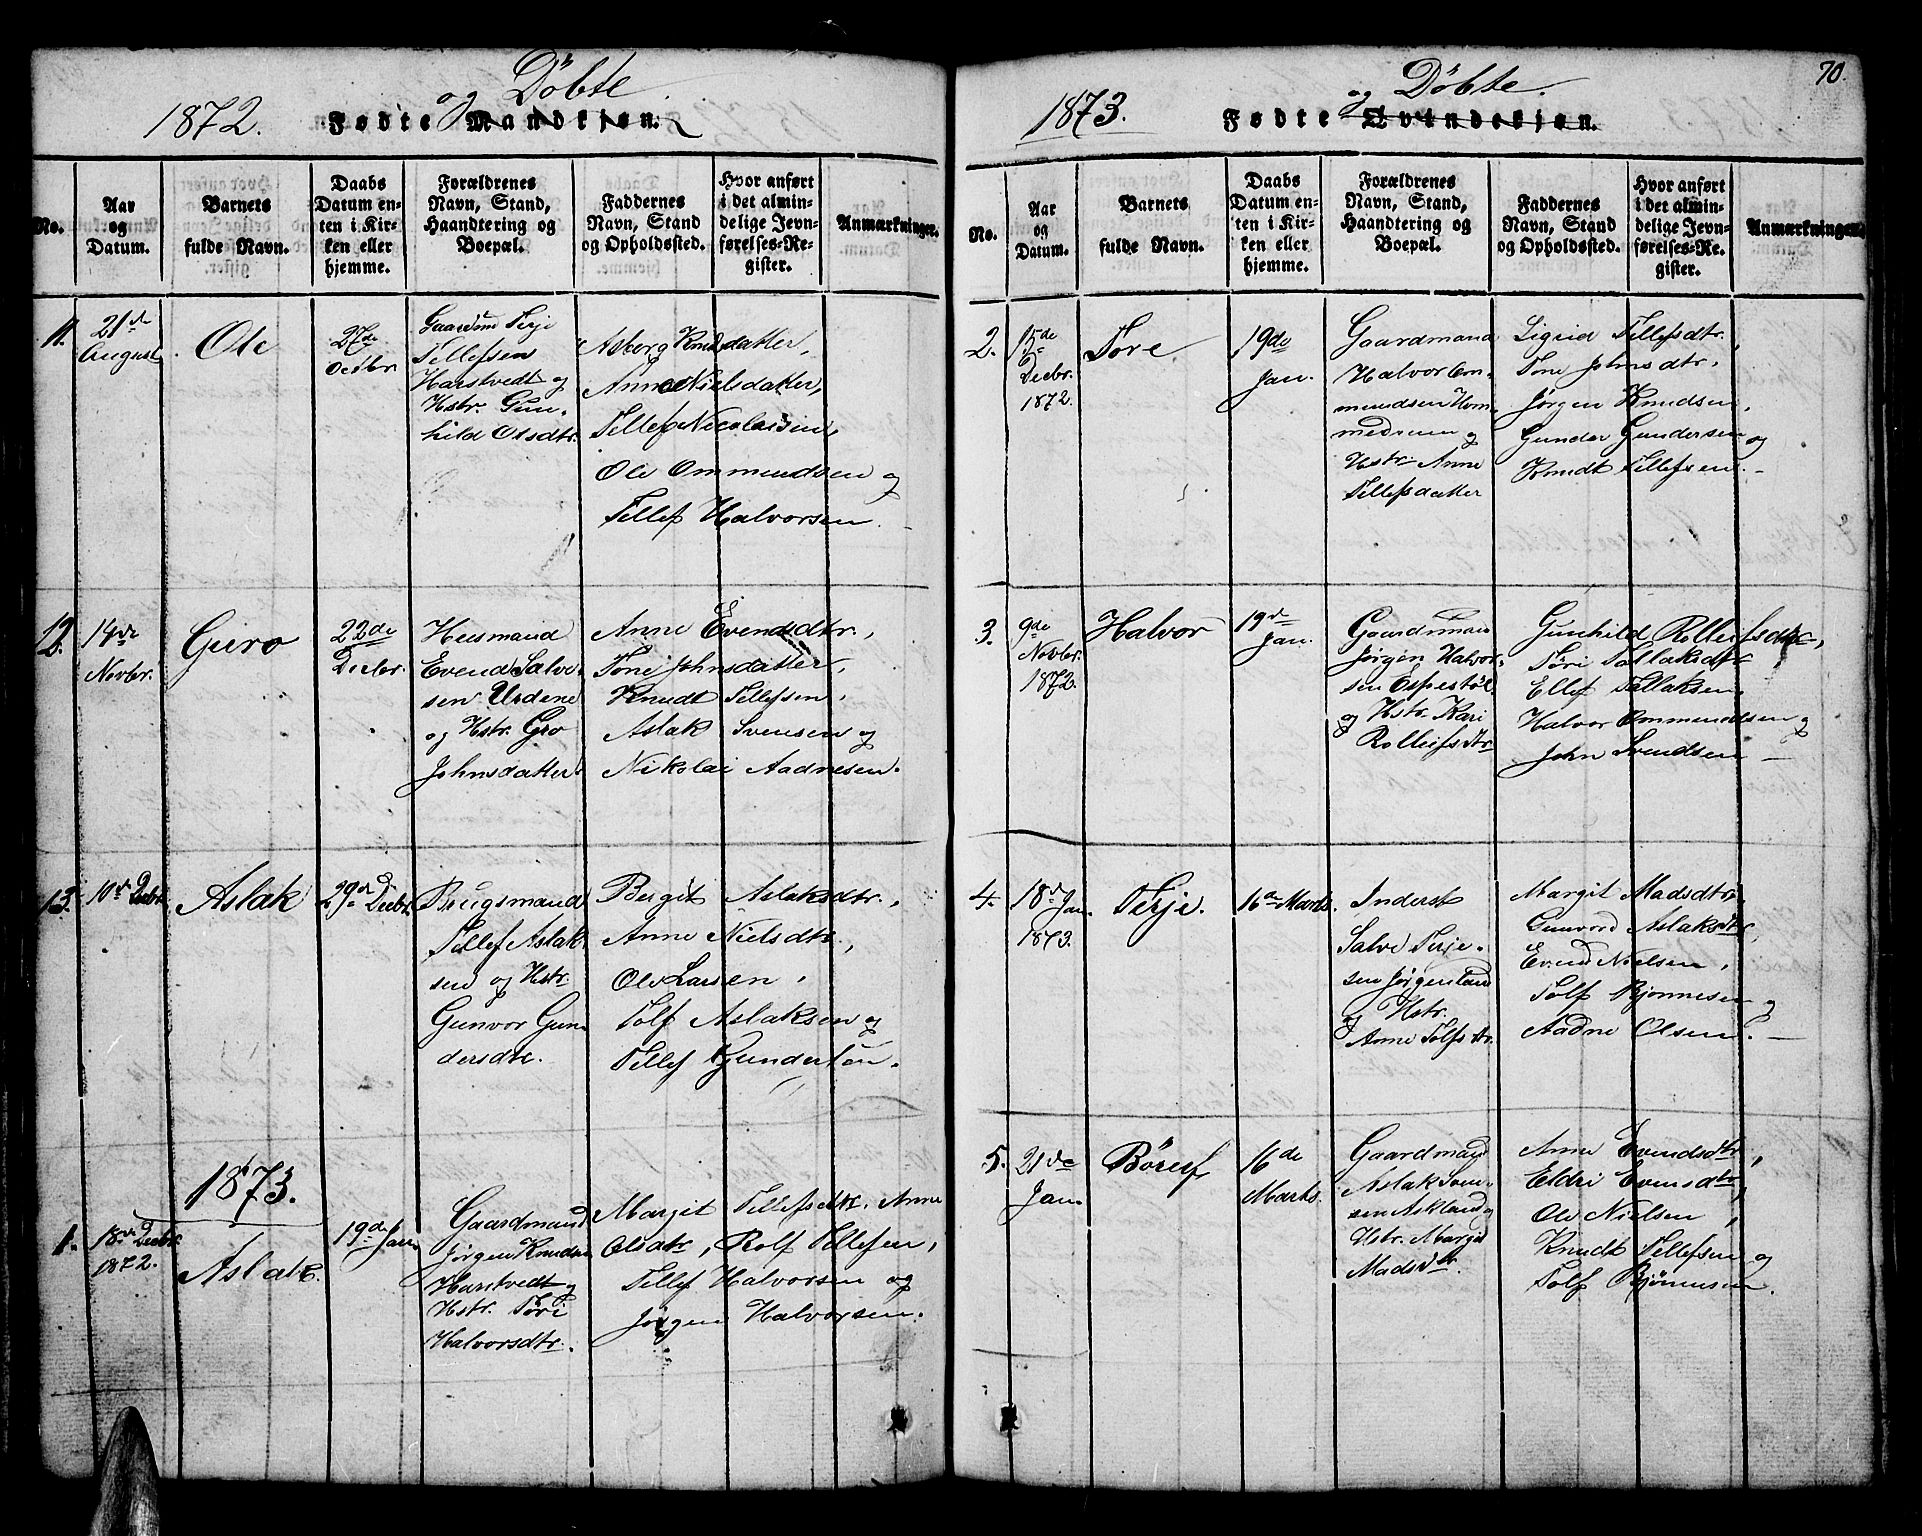 1872.
Fødte Mandkjøn.
og Döbte
No.
Aar
og
Datum.
Barnets
fulde Navn.
Daabs
Datum en-
ten i Kir-
ken eller
hjemme.
Forældrenes
Navn, Stand,
Haandtering og
Boepæl.
Faddernes
Navn, Stand
og Opholdssted.
Hvor anført
i det almin-
delige Jevn-
førelses-Re-
gister.
Anmærkninger.
11.
21de
August
Ole
27de
Octbr.
Gaardmd Terje
Tellefsen
Harstvedt og
Hstr. Gun-
hild Olsdtr.
Asborg Knudsdatter,
Anne Nielsdatter,
Tellef Nicolaisen,
Ole Ommundsen og
Tellef Halvorsen.
12.
14de
Novbr.
Guro
22de
Decbr.
Husmand
Evend Salve-
sen Urdene
og Hstr. Gro
Johnsdatter.
Anne Evendsdtr.,
Tone Johnsdatter,
Knudt Tellefsen,
Aslak Svensen og
Nikolai Aadnesen.
13.
10de Decbr.
Aslak
29de Decbr.
Brugsmand
Tellef Aslak
sen og Hstr.
Gunvor Gun-
dersdtr.
Bergit Aslaksdtr.,
Anne Nielsdtr.,
Ole Larsen,
Tolf Aslaksen og
Tellef Gundersen.
1873.
1.
18de Decbr.
1872.
Aslak.
19de Jan.
Gaardmand
Jörgen Knudsen
Harstvedt og
Hstr. Töri
Halvorsdtr.
Margit Tellefsdtr. Anne
Olsdtr, Rolf Tellefsen,
Tellef Halvorsen og
Jörgen Halvorsen.
70.
1873.
Fødte Qvindekjøn.
og Döbte.
No.
Aar
og
Datum.
Barnets
fulde Navn.
Daabs
Datum en-
ten i Kir-
ken eller
hjemme.
Forældrenes
Navn, Stand,
Haandtering og
Boepæl.
Faddernes
Navn, Stand
og Opholdssted.
Hvor anført
i det almin-
delige Jevn-
førelses-Re-
gister.
Anmærkninger.
2.
15de
Decbr.
1872.
Tore
19de
Jan.
Gaardmand
Halvor Om-
mundsen Hom-
og
Hstr. Anne
Tellefsdatter
Sigrid Tellefsdtr.
Tone Johnsdtr.
Jørgen Knudsen,
Gunder Gundersen og
Knudt Tellefsen.
3.
9de
Novbr.
1872.
Halvor
19de
Jan.
Gaardmand
Jörgen Halvor-
sen Espestöl
og Hstr. Kari
Rolleifsdtr
Gunhild Rolleifsdtr,
Töri Tallaksdtr
Ellef Tallaksen,
Halvor Ommundsen og
John Svendsen
4.
18de Jan.
1873.
Terje.
16de Marts.
Inderst
Salve Terje-
sen Jörgenland
og Hstr.
Anne Tolfsdtr.
Margit Madsdtr,
Gunvord Aslaksdtr,
Evend Nielsen,
Tolf Bjønnesen og
Aadne Olsen.
5.
21de
Jan.
Böref
16de
Marts.
Gaardmand
Aslak Sven-
sen Askland og
Hstr. Margit
Madsdtr.
Anne Evendsdtr,
Eldri Evensdtr,
Ole Nielsen,
Knudt Tellefsen og
Tolf Bjönnesen.